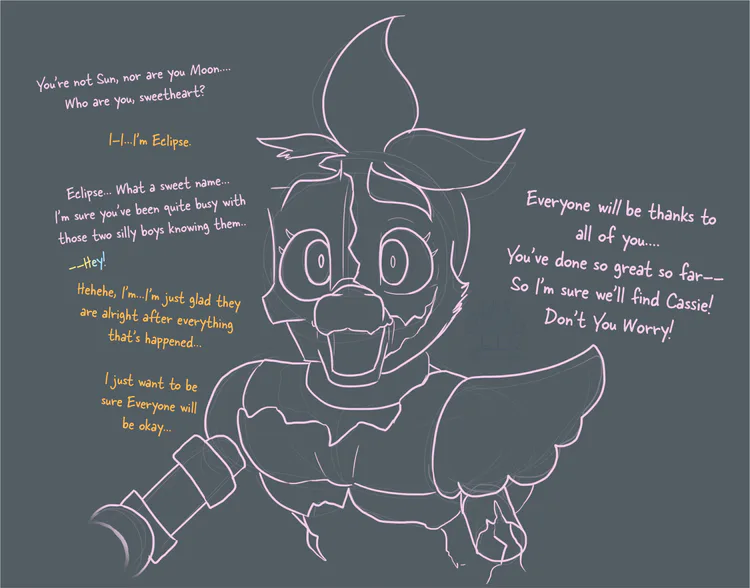 You're not Sun, nor are you Moon....
Who are you, sweetheart?
I-I...I'm Eclipse.
Eclipse... What a sweet name...
I'm sure you've been quite busy with
those two silly boys knowing them..
--Hey!
Hehehe, I'm...I'm just glad they
are alright after everything
that's happened...
I just want to be
sure Everyone will
be okay...
Everyone will be thanks to
all of you....
You've done so great so far--
So I'm sure we'll find Cassie!
Don't You Worry!